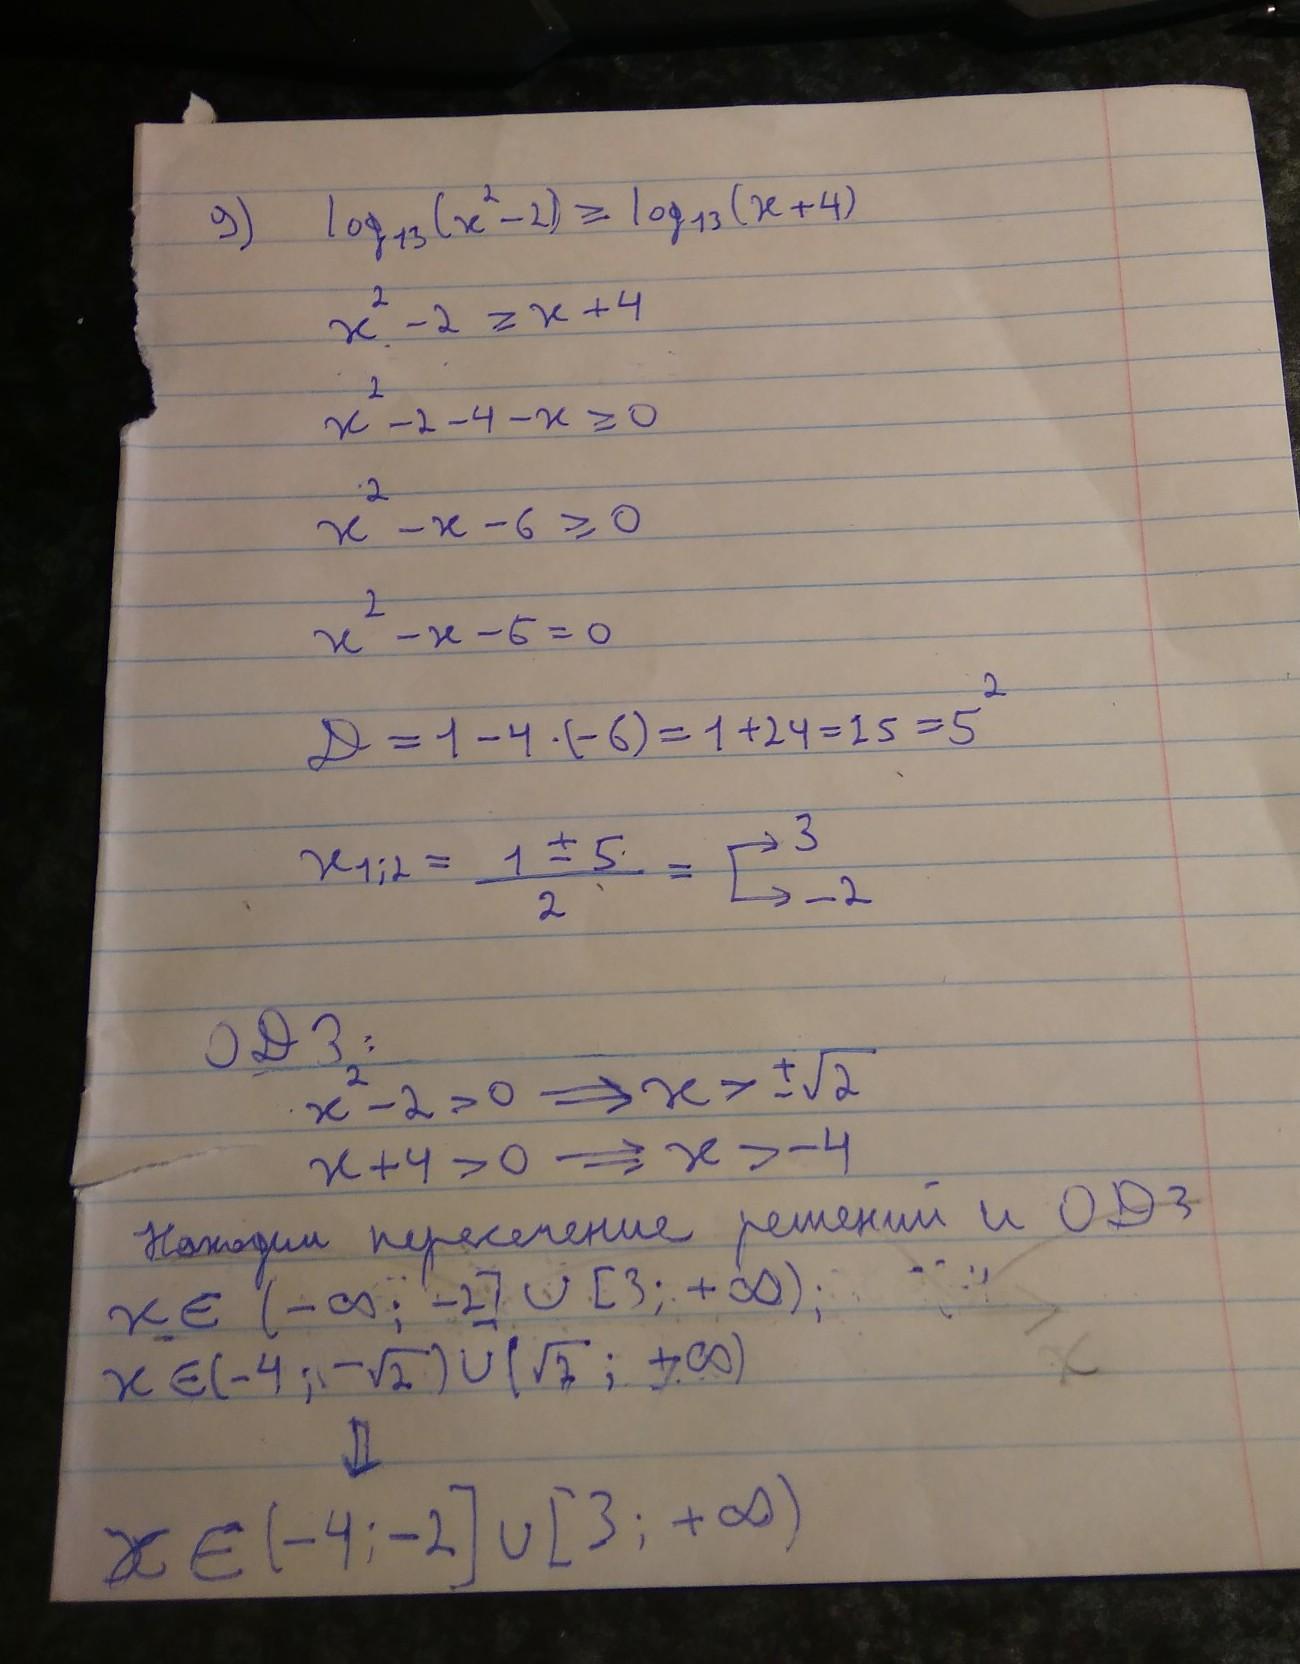 9) log₁₃(x²-2) ≥ log₁₃(x+4)
x² - 2 ≥ x + 4
x² - 2 - 4 - x ≥ 0
x² - x - 6 ≥ 0
x² - x - 6 = 0
D = 1 - 4·(-6) = 1 + 24 = 25 = 5²
x₁;₂ = (1 ± 5)/2 = [→ 3 → -2
ОДЗ:
x² - 2 > 0 ⟹ x > ±√2
x + 4 > 0 ⟹ x > -4
Находим пересечение решений и ОДЗ
x ∈ (-∞; -2] ∪ [3; +∞);
x ∈ (-4; -√2) ∪ (√2; +∞)
⇓
x ∈ (-4; -2] ∪ [3; +∞)